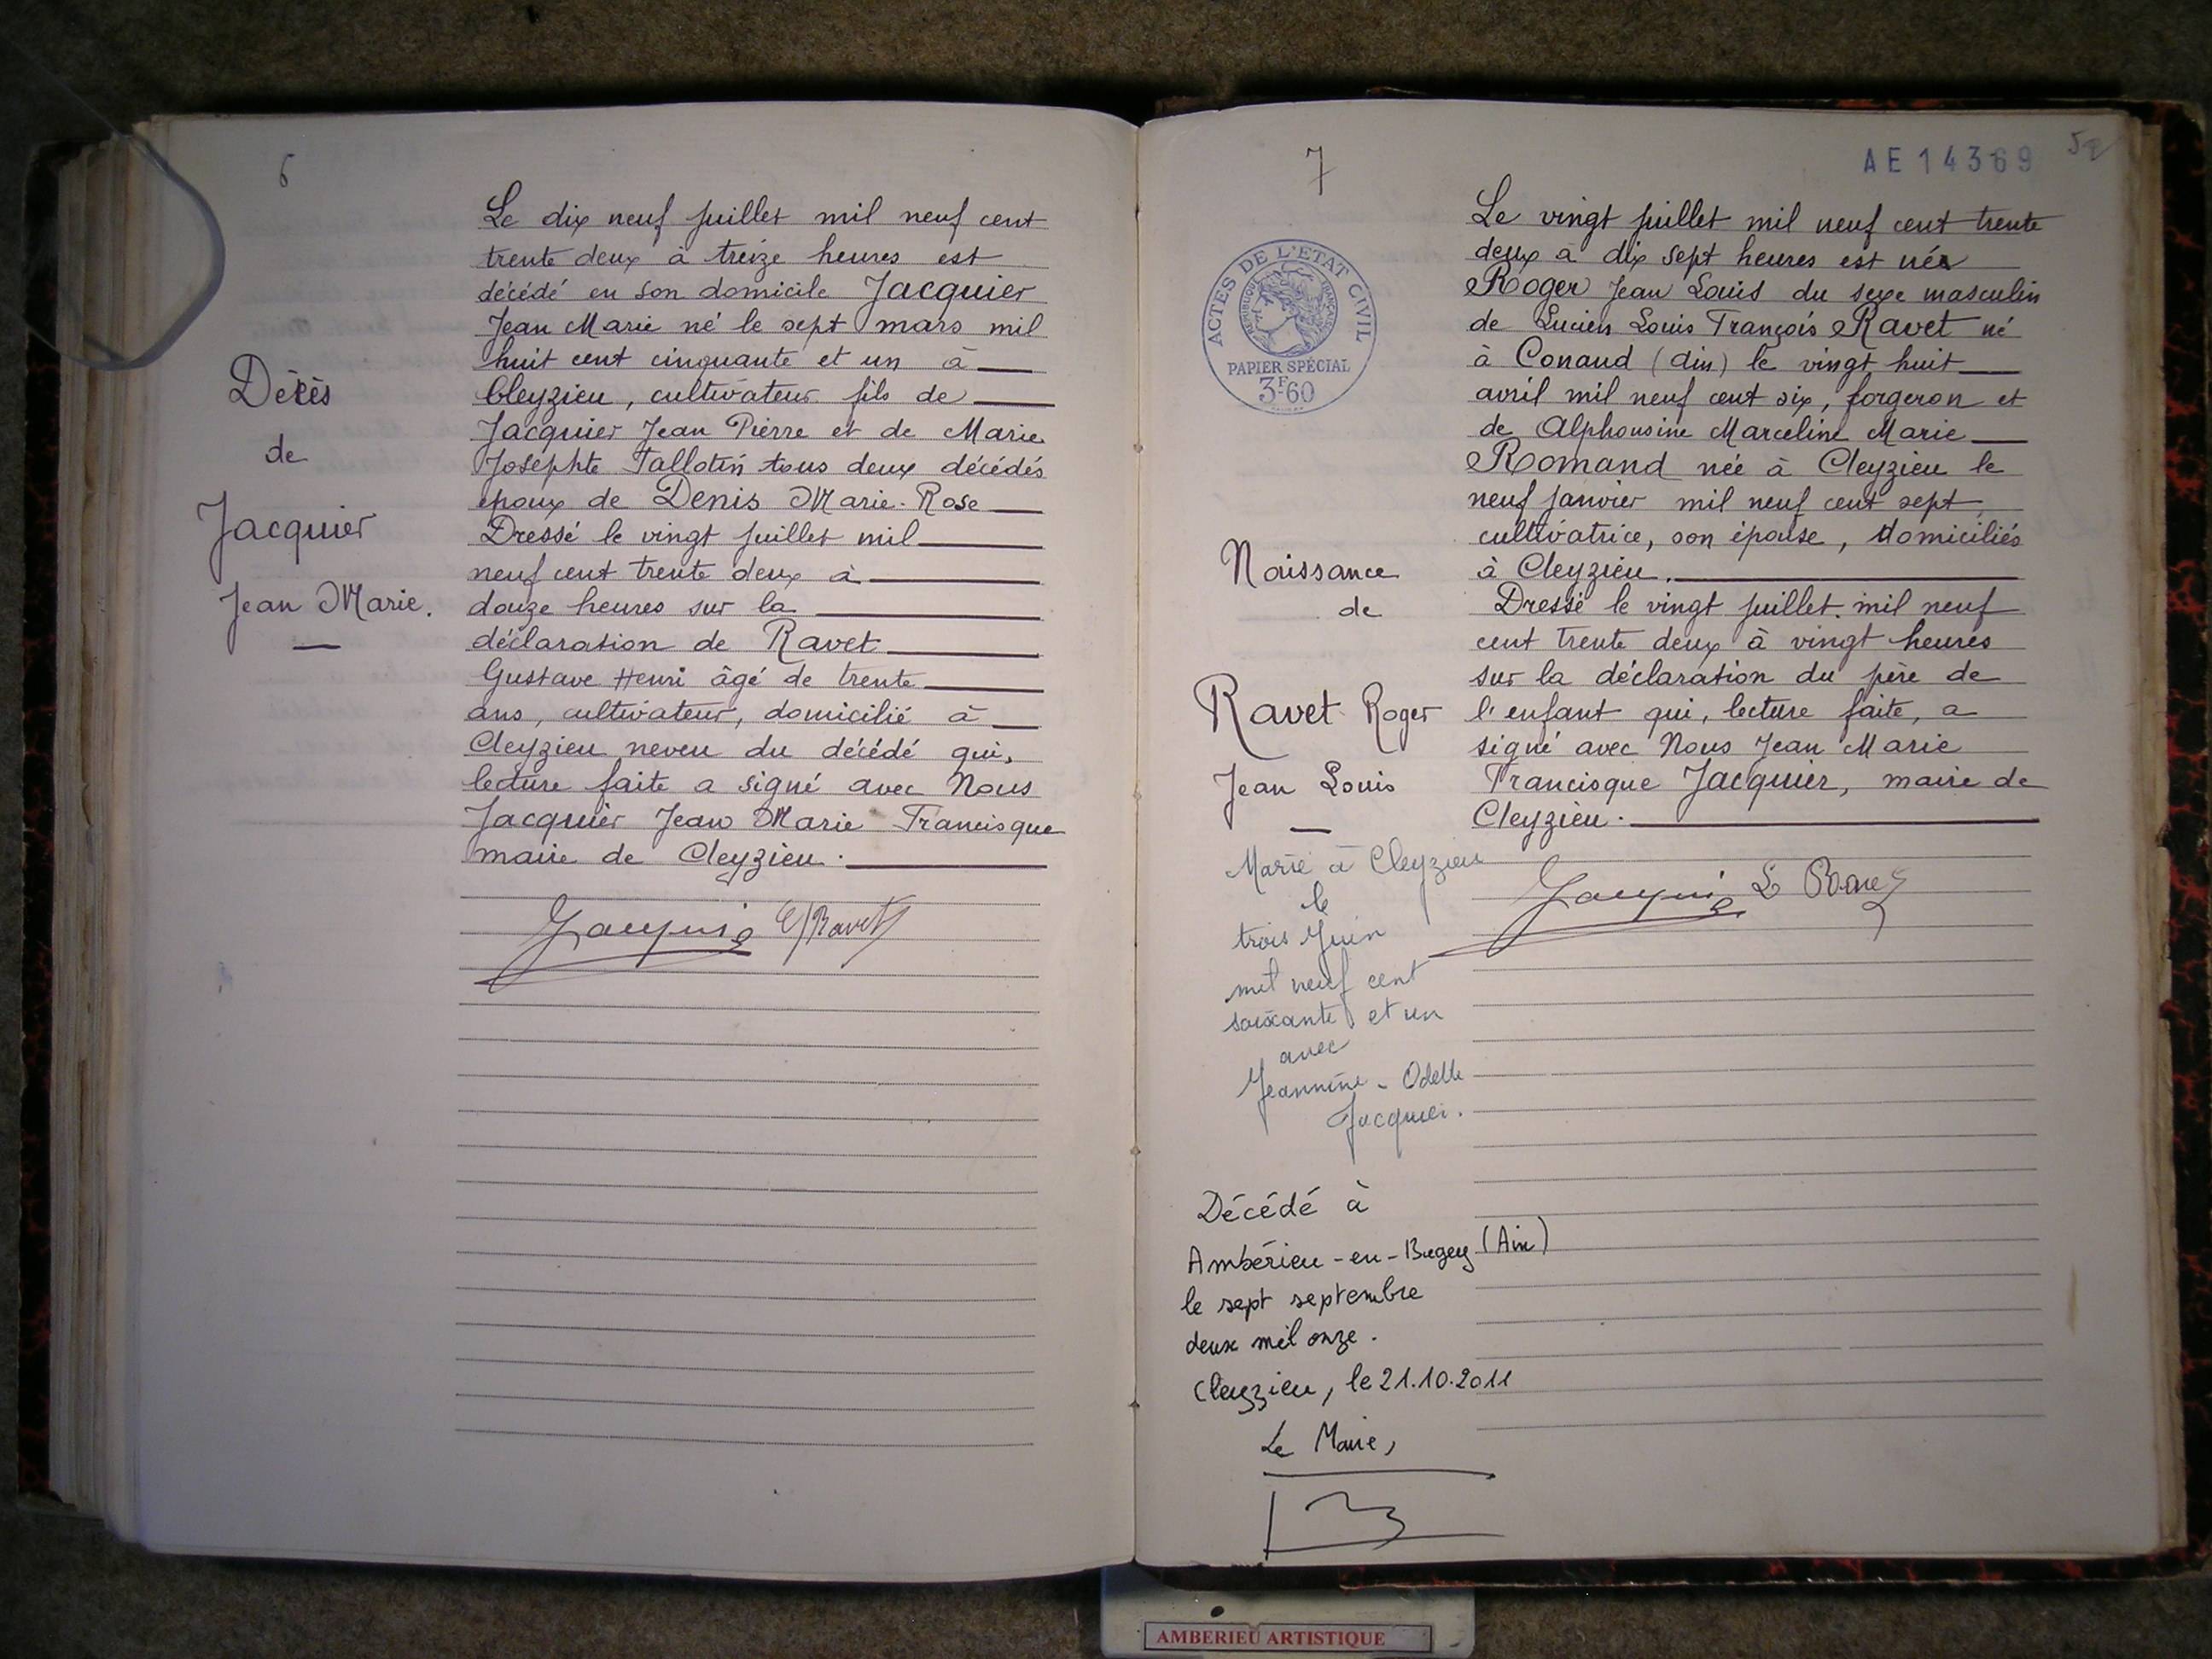 6
Décès
de
Jacquier
Jean Marie.
Le dix neuf juillet mil neuf cent
trente deux à treize heures est
décédé en son domicile Jacquier
Jean Marie né le sept mars mil
huit cent cinquante et un à
Cleyzieu, cultivateur fils de
Jacquier Jean Pierre et de Marie
Josephte Tallotin tous deux décédés
époux de Denis Marie-Rose
Dressé le vingt juillet mil
neuf cent trente deux à
douze heures sur la
déclaration de Ravet
Gustave Henri âgé de trente
ans, cultivateur, domicilié à
Cleyzieu neveu du décédé qui,
lecture faite a signé avec Nous
Jacquier Jean Marie Francisque
maire de Cleyzieu.
Jacquier Ravet
7
AE14369
52
ACTES DE L'ETAT CIVIL
REPUBLIQUE FRANÇAISE
PAPIER SPÉCIAL
3F60
Naissance
de
Ravet Roger
Jean Louis
Le vingt juillet mil neuf cent trente
deux à dix sept heures est né
Roger Jean Louis du sexe masculin
de Lucien Louis François Ravet né
à Conand (Ain) le vingt huit
avril mil neuf cent six, forgeron et
de Alphonsine Marceline Marie
Romand née à Cleyzieu le
neuf janvier mil neuf cent sept,
cultivatrice, son épouse, domiciliés
à Cleyzieu.
Dressé le vingt juillet mil neuf
cent trente deux à vingt heures
sur la déclaration du père de
l'enfant qui, lecture faite, a
signé avec Nous Jean Marie
Francisque Jacquier, maire de
Cleyzieu.
Jacquier L Ravet
Marié à Cleyzieu
le
trois Juin
mil neuf cent
soixante et un
avec
Jeannine-Odette
Jacquier.
Décédé à
Ambérieu-en-Bugey (Ain)
le sept septembre
deux mil onze.
Cleyzieu, le 21.10.2011
Le Maire,
AMBERIEU ARTISTIQUE